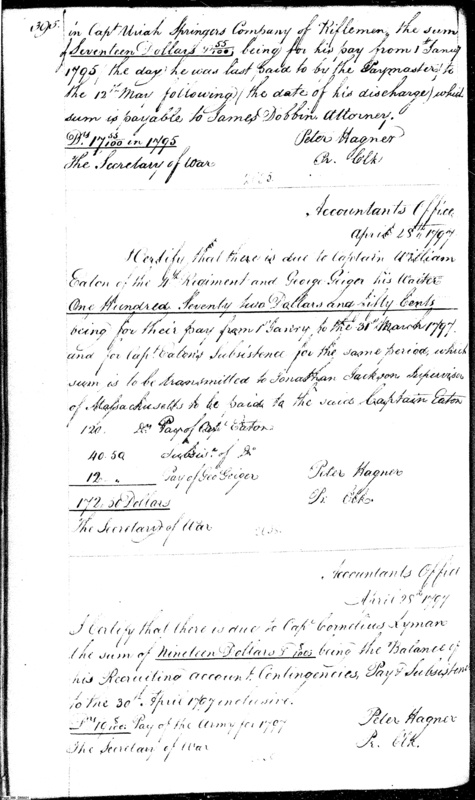 1395.
in Capt Uriah Springers Company of Riflemen, the sum
of Seventeen Dollars & 55/100 being for his pay from 1st Janry
1795 (the day he was last paid to by the Paymaster) to
the 12th May following (the date of his discharge) which
sum is payable to James Dobbin Attorney.
Drs 17 55/100 in 1795 Peter Hagner
The Secretary of War Pr. Clk
Accountants Office
April 28th 1797
I Certify that there is due to Captain William
Eaton of the 4th Regiment and George Geiger his Waiter
One Hundred Seventy two Dollars and fifty Cents
being for their pay from 1st Janry to the 31st March 1797.
and for Capt Eaton's Subsistence for the same period, which
sum is to be transmitted to Jonathan Jackson Supervisor
of Massachusetts to be paid to the said Captain Eaton
120. Drs Pay of Capt Eaton
40.50 Subsist. of Do
12 " Pay of Geo Geiger Peter Hagner
172.50 Dollars Pr. Clk.
The Secretary of War
Accountants Office
April 28th 1797
I Certify that there is due to Capt Cornelius Lyman
the sum of Nineteen Dollars & /100 being the Balance of
his Recruiting account, Contingencies, Pay & Subsistence
to the 30th April 1797 inclusive.
Drs 19 /100 Pay of the Army for 1797 Peter Hagner
The Secretary of War Pr. Clk.